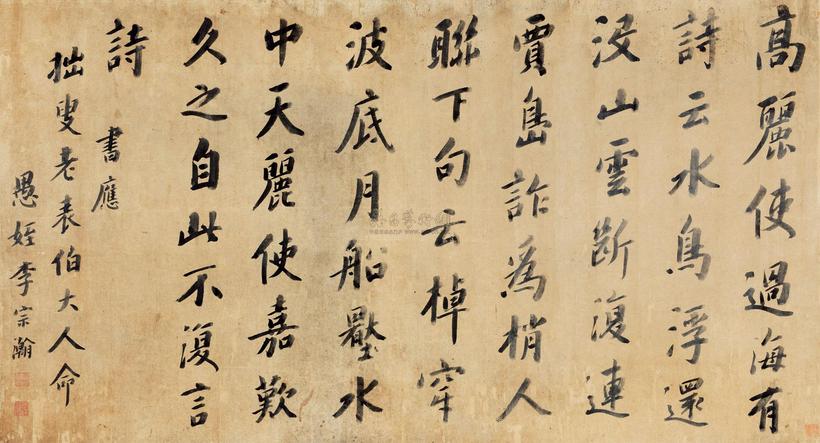 高麗使過海有
詩云水鳥浮還
沒山雲斷復連
賈島詐為梢人
聯下句云棹穿
波底月船壓水
中天麗使嘉歎
久之自此不復言
詩
書應
拙叟老表伯大人命
愚姪李宗瀚